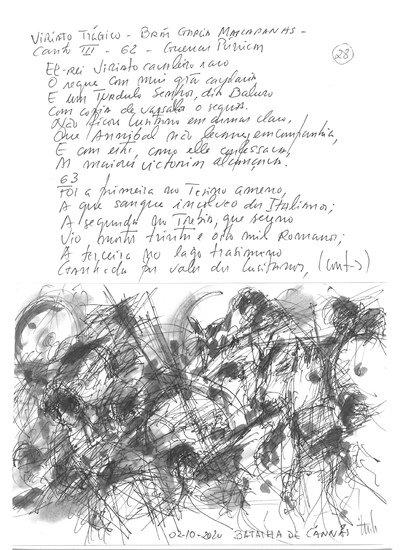 Viriato Trágico - Brás Garcia Mascarenhas -
Canto III - 62 - Guerras Púnicas
(28)
El-rei Viriato cavaleiro raro
O segue com mui grã cavalaria
E um Turdulo Sempros, dito Baluro
Com copia de vassalos o seguia.
Não ficou Lusitano em armas claro,
Que Annibal não levasse em companhia,
E com estes, como elle confessava,
As maiores victorias alcançava.
63
Foi a primeira no Tesino ameno,
A que sangue involveo dos Italianos;
A segunda no Trebia, que sereno
Vio mortos trinta e oito mil Romanos;
A terceira no lago trasimeno
Ganhada por valor dos Lusitanos, (cont->)
02-10-2020 BATALHA DE CANNAS